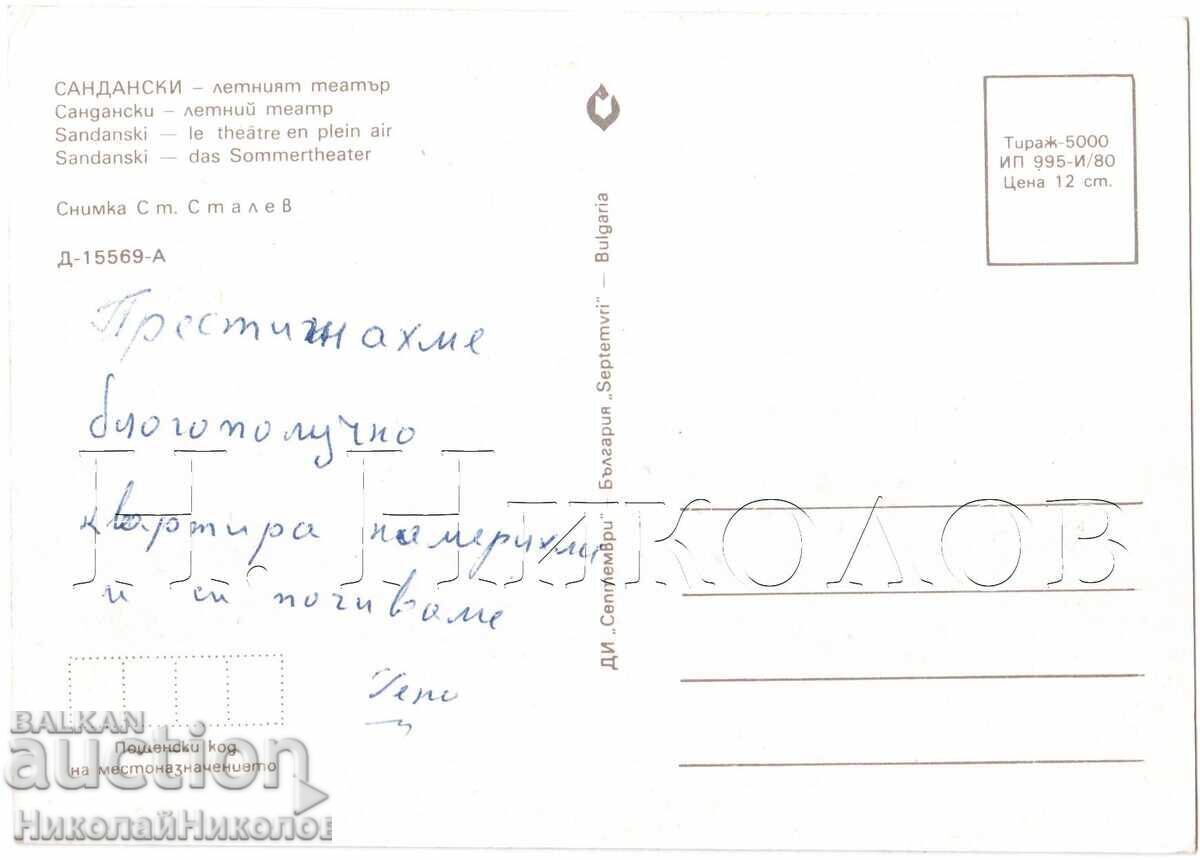 САНДАНСКИ – летният театър
Сандански – летний театр
Sandanski — le théâtre en plein air
Sandanski — das Sommertheater
Снимка Ст. Сталев
Д-15569-А
Престигнахме
благополучно
квартира намерихме
и си почиваме
Пощенски код
на местоназначението
ДИ „Септември" България „Septemvri" — Bulgaria
Тираж-5000
ИП 995-И/80
Цена 12 ст.
Н. Николов
BALKAN
auction
НиколайНиколов